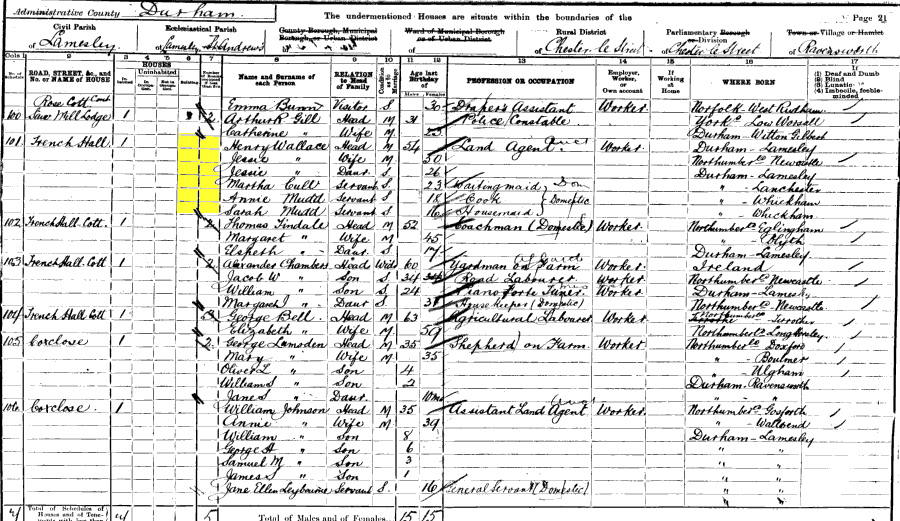 Administrative County Durham The undermentioned Houses are situate within the boundaries of the Page 21
Civil Parish of Lamesley
Ecclesiastical Parish of Lamesley St Andrews
County Borough, Municipal Borough, or Urban District
Ward of Municipal Borough or of Urban District
Rural District of Chester le Street
Parliamentary Borough or Division of Chester le Street
Town or Village or Hamlet of Ravensworth
Cols 1 2 3 4 5 6 7 8 9 10 11 12 13 14 15 16 17
ROAD, STREET, &c., and No. or NAME of HOUSE
HOUSES
Inhabited
Uninhabited
Name and Surname of each Person
RELATION to Head of Family
Condition as to Marriage
Age last Birthday of
Males Females
PROFESSION OR OCCUPATION
Employer, Worker, or Own account
If Working at Home
WHERE BORN
(1) Deaf and Dumb
(2) Blind
(3) Lunatic
(4) Imbecile, feeble-minded
Rose Cott Emma Bunn Visitor S 30 Drapers Assistant Worker Norfolk West Rudham
100 Saw Mill Lodge 1 2 Arthur K Gill Head M 31 Police Constable York Low Worsall
Catherine " Wife M 23 Durham Witton Gilbert
101 French Hall 1 Henry Wallace Head M 54 Land Agent Worker Durham - Lamesley
Jessie " Wife M 50 Northumberld Newcastle
Jessie " Daur S 26 Durham - Lamesley
Martha Cull Servant S 23 Waitingmaid " - Lanchester
Annie Mudd Servant S 18 Cook Domestic " - Whickham
Sarah Mudd Servant S 16 Housemaid " Whickham
102 French Hall Cott. 1 Thomas Tindale Head M 52 Coachman (Domestic) Worker Northumberld Eglingham
Margaret " Wife M 45 " - Blyth
Elspeth " Daur S 17 Durham - Lamesley
103 French Hall Cott 1 2 Alexander Chambers Head Widr 60 Yardman on Farm Worker Ireland
Jacob W " Son S 34 Road Labourer Worker Northumberld Newcastle
William " Son S 24 Pianoforte Tuner Worker Durham - Lamesley
Margaret J " Daur S 31 Housekeeper (Domestic) Northumberld - Newcastle
104 French Hall Cott 1 3 George Bell Head M 63 Agricultural Labourer Worker Northumberld
Elizabeth " Wife M 59 Northumberld Longhorsley
105 Coxclose 1 2 George Lamsden Head M 35 Shepherd on Farm Worker Northumberld Doxford
Mary " Wife M 35 " - Boulmer
Oliver L " Son 4 " - Ulgham
William S " Son 2 Durham - Ravensworth
Jane S " Daur 10mo
106 Coxclose 1 William Johnson Head M 35 Assistant Land Agent Worker Northumberld Gosforth
Annie " Wife M 39 " - Wallsend
William " Son 8 Durham - Lamesley
George H " Son 6 " "
Samuel M " Son 3 " "
James S " Son 1 " "
Jane Ellen Leybourne Servant S 16 General Servant (Domestic) " "
Total of Schedules of Houses and of Tenements with less than 5 Total of Males and of Females 15 15